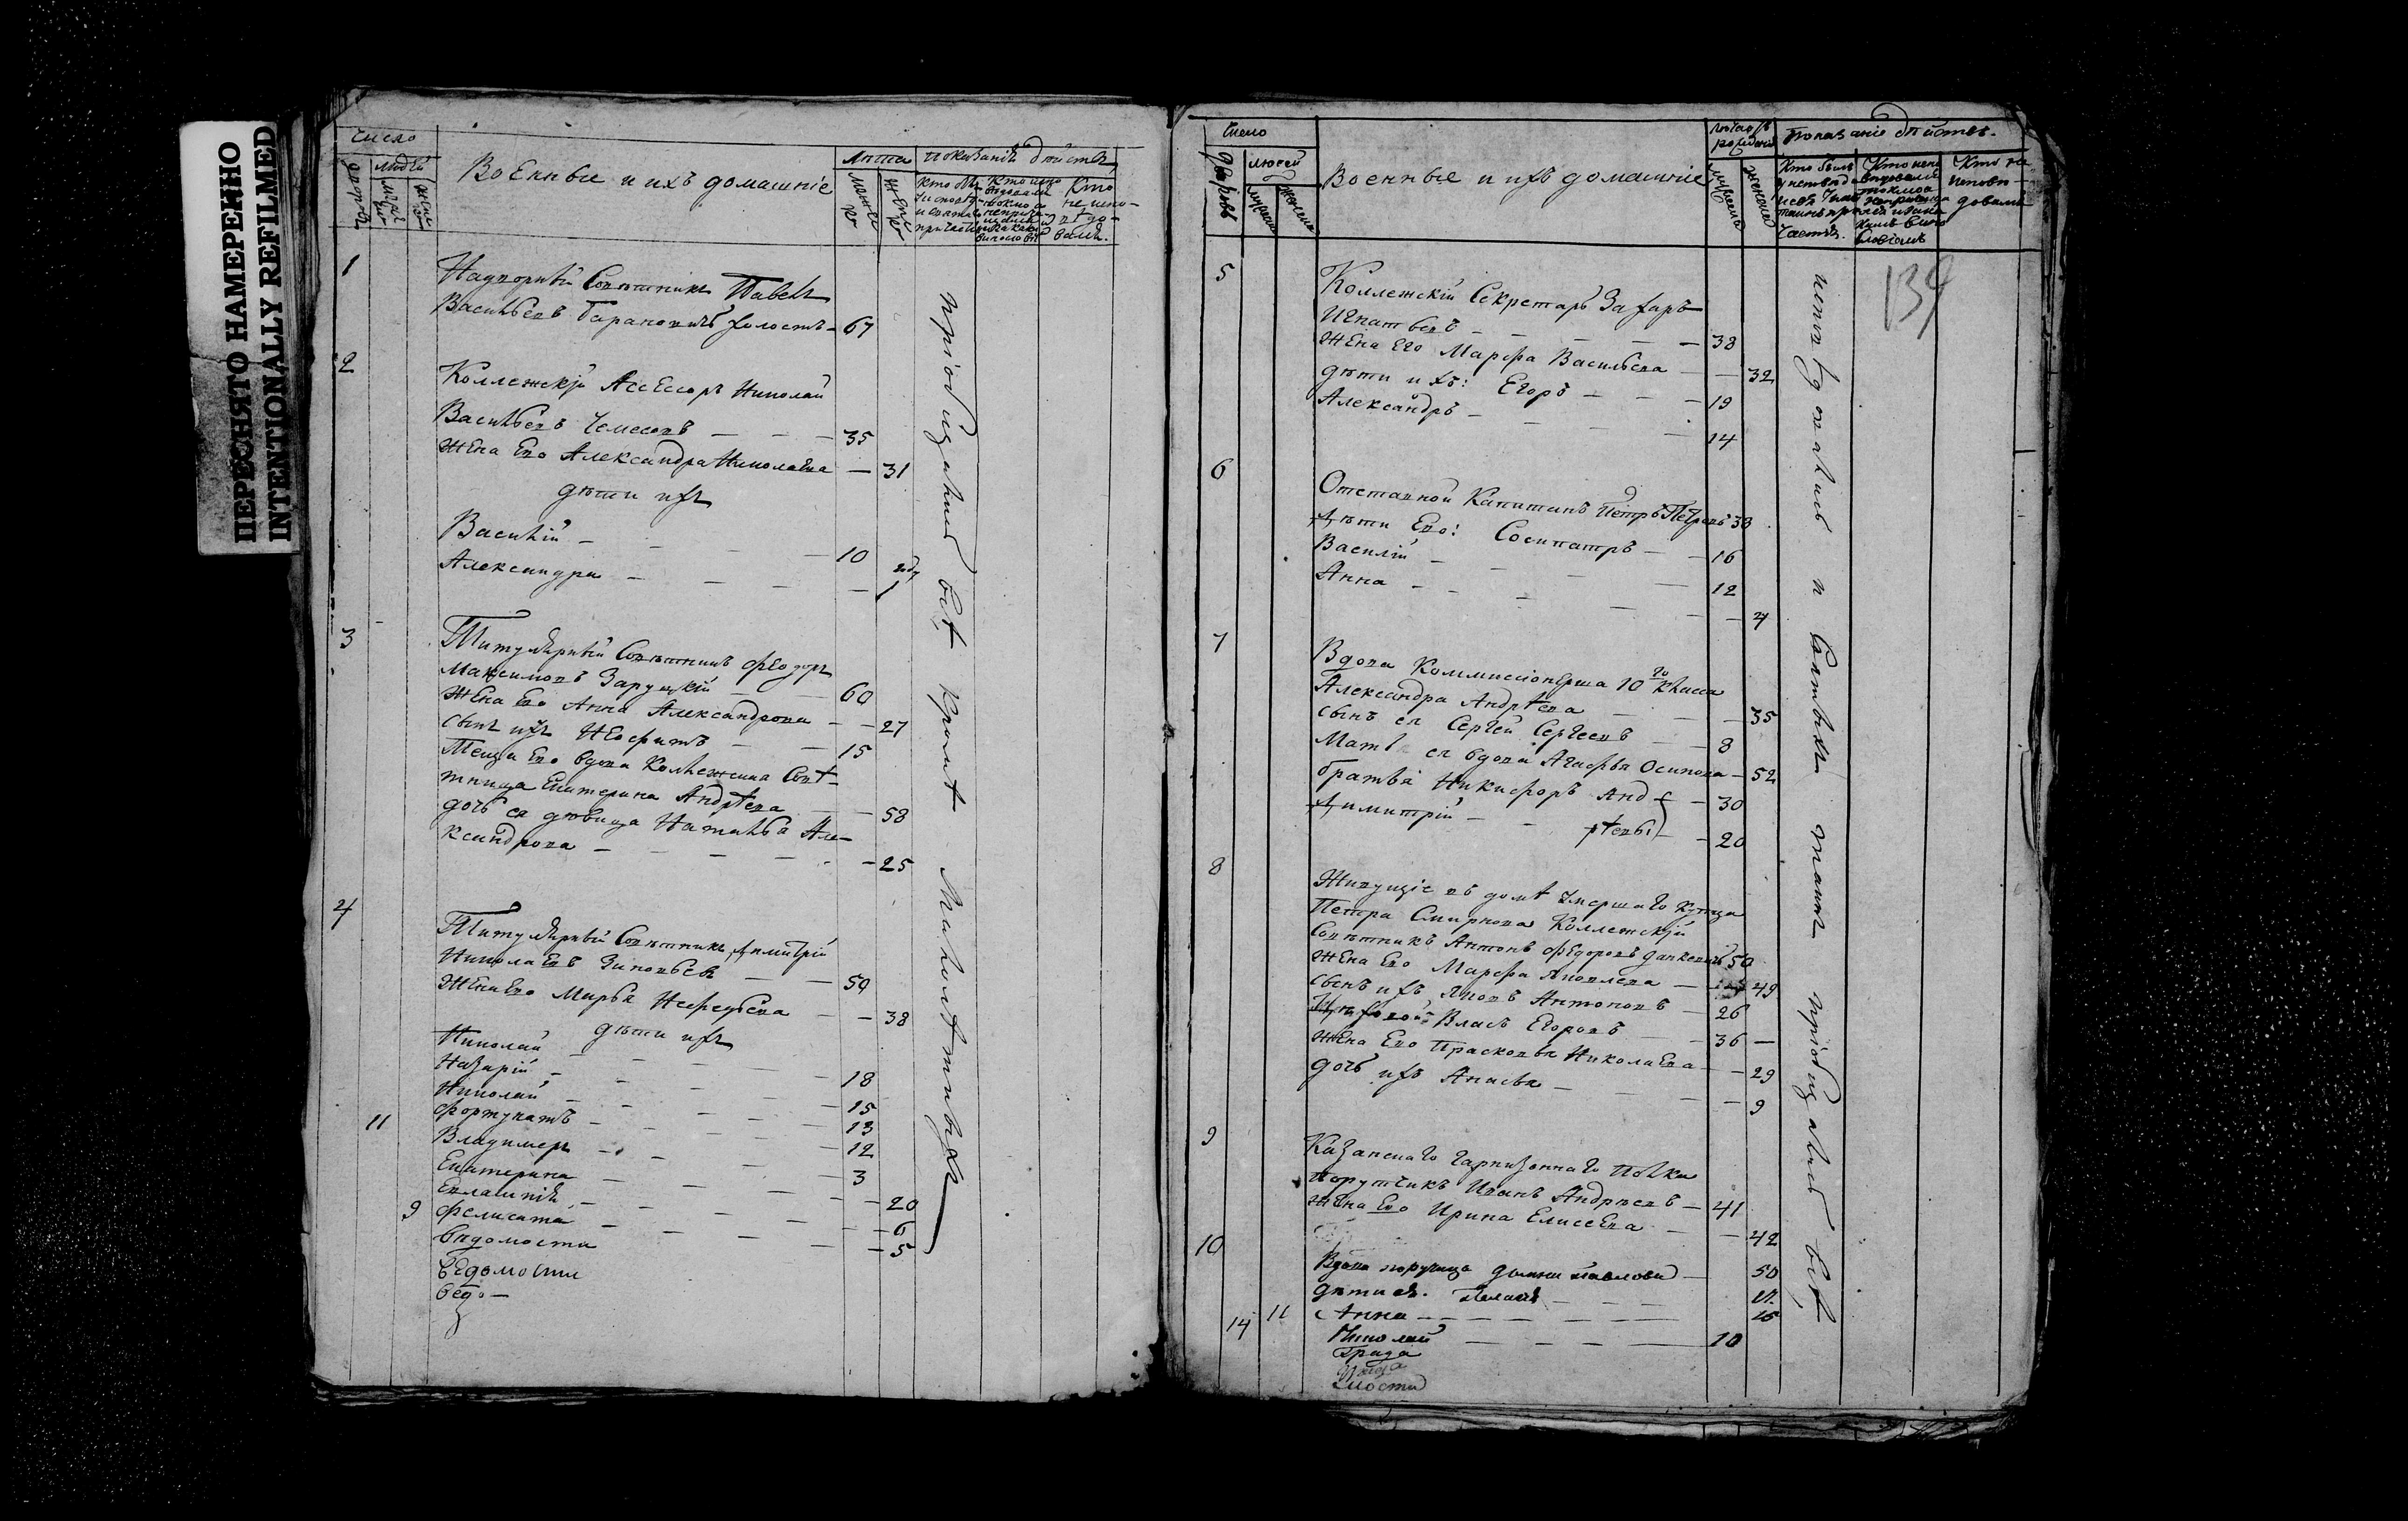 ПЕРЕСНЯТО НАМЕРЕННО
INTENTIONALLY REFILMED
Число
людей
Военные и ихъ домашніе
Лѣта
показаніе дѣйства
1
Надворный Совѣтникъ Павелъ
Васильевъ Барановичъ холостъ - 67
2
Коллежскій Асессоръ Николай
Васильевъ Чемесовъ - - - 35
Жена Ево Александра Николаева - 31
дѣти ихъ
Василій - - - - 10
Александра - - - - 1
3
Титулярный Совѣтникъ Феодоръ
Максимовъ Заруцкій - - 60
Жена Ево Анна Александрова - - 27
сынъ ихъ Неофитъ - - 15
Теща Ево вдова Коллежская Совѣ-
тница Екатерина Андрѣева - - 58
дочь ея дѣвица Наталья Але-
ксандрова - - - - - 25
4
Титулярный Совѣтникъ Димитрій
Николаевъ Зиновьев - - 50
Жена Ево Марья Нефедьева - - 38
дѣти ихъ
Николай - - - - 18
Назарій - - - - 15
Николай - - - - 13
11 Фортунатъ - - - - 12
Владимеръ - - - - 3
Екатерина - - - - 20
Евлампія - - - - 6
9 Фелицата - - - - 5
вѣдомости
Ведомости
ведо-
пріобщались всѣ кромѣ Малолѣтныхъ
Число
людей
дворовъ
Военные и ихъ домашніе
мужеска
женска
Показаніе дѣйства.
139
5
Коллежскій Секретарь Захаръ
Игнатьевъ - - - - 38
Жена Его Марфа Васильева - - 32
дѣти ихъ: Егоръ - - - 19
Александръ - - - - 14
6
Отставной Капитанъ Петръ Петровъ 38
Дѣти Ево: Сосипатръ - - 16
Василій - - - - 12
Анна - - - - - 4
7
Вдова Коммиссіонерша 10го Класа
Александра Андрѣева - - - 35
сынъ ея Сергѣй Сергеевъ - - 8
Мать ея вдова Агафья Осипова - 52
братья Никифоръ Анд - - 30
Димитрій - - рѣевы - - 20
8
Живущіе въ домѣ Умершаго Купца
Петра Смирнова Коллежскій
Совѣтникъ Антонъ Федоровъ 50
Жена Ево Марфа Яковлева - 49
сынъ ихъ Яковъ Антоновъ - 26
Власъ Егоровъ - - 36 -
Жена Ево Прасковья Николаева - - 29
дочь ихъ Анисья - - - 9
9
Казанскаго Гарнизоннаго Полка
Порутчикъ Иванъ Андрѣевъ - 41
Жена Ево Ирина Елисеева - - 42
10
Вдова Павлова - 50
дѣти ея. Пелагея - - -
14 11 Анна - - - - - - 15
Николай - - - - 10
исповѣдовались и Святыхъ таинъ пріобщались всѣ